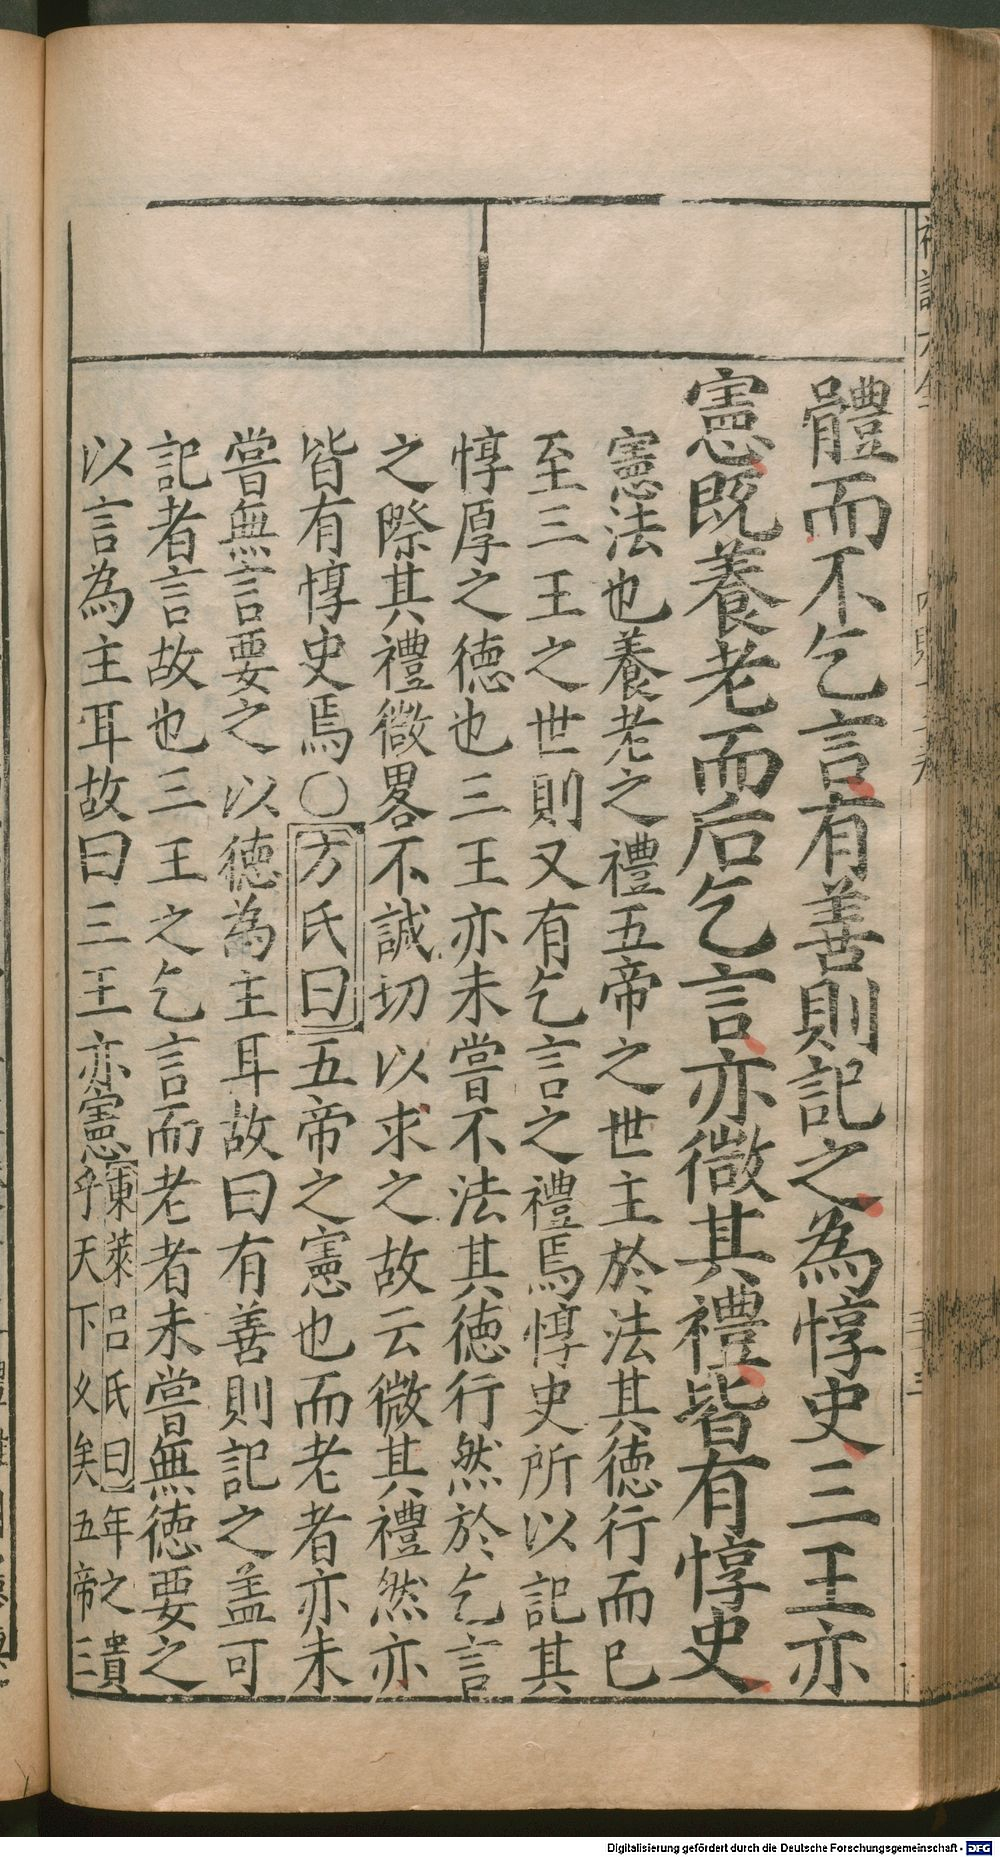 體而不乞言有善則記之為惇史三王亦
憲既養老而后乞言亦微其禮皆有惇史
憲法也養老之禮五帝之世主於法其徳行而已
至三王之世則又有乞言之禮焉惇史所以記其
惇厚之徳也三王亦未嘗不法其徳行然於乞言
之際其禮微畧不誠切以求之故云微其禮然亦
皆有惇史焉〇方氏曰五帝之憲也而老者亦未
嘗無言要之以徳為主耳故曰有善則記之盖可
記者言故也三王之乞言而老者未嘗無徳要之
以言為主耳故曰三王亦憲東萊呂氏曰年之貴
乎天下乆矣五帝三
Digitalisierung gefördert durch die Deutsche Forschungsgemeinschaft - DFG